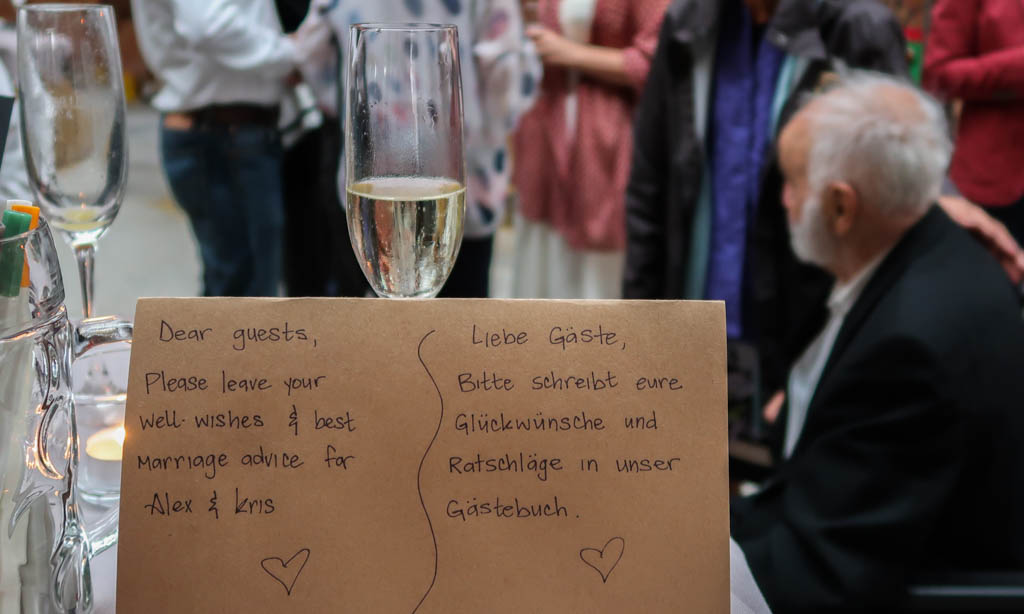 Dear guests,
Please leave your
well-wishes & best
marriage advice for
Alex & Kris
Liebe Gäste,
Bitte schreibt eure
Glückwünsche und
Ratschläge in unser
Gästebuch.